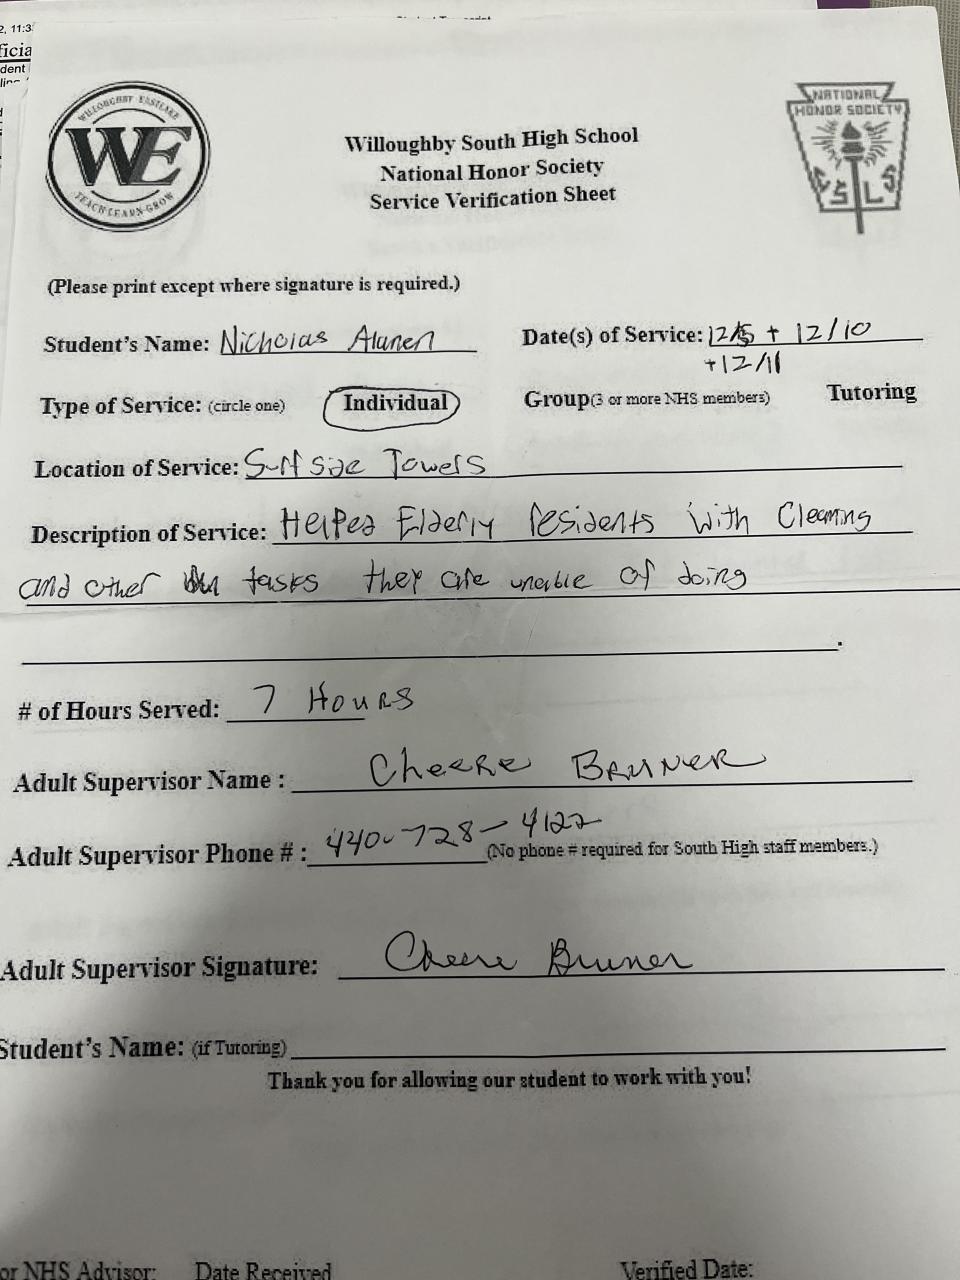 2, 11:3
ficia
dent
WILLOUGHBY EASTLAKE
WE
TEACH·LEARN·GROW
NATIONAL
HONOR SOCIETY
S L S
Willoughby South High School
National Honor Society
Service Verification Sheet
(Please print except where signature is required.)
Student's Name: Nicholas Alanen Date(s) of Service: 12/5 + 12/10
+12/11
Type of Service: (circle one) Individual Group(3 or more NHS members) Tutoring
Location of Service: Surfside Towers
Description of Service: Helped Elderly residents with Cleaning
and other tasks they are unable of doing
# of Hours Served: 7 Hours
Adult Supervisor Name : Cheere Bruner
Adult Supervisor Phone # : 440-728-4122
(No phone # required for South High staff members.)
Adult Supervisor Signature: Cheere Bruner
Student's Name: (if Tutoring)
Thank you for allowing our student to work with you!
or NHS Advisor: Date Received Verified Date: